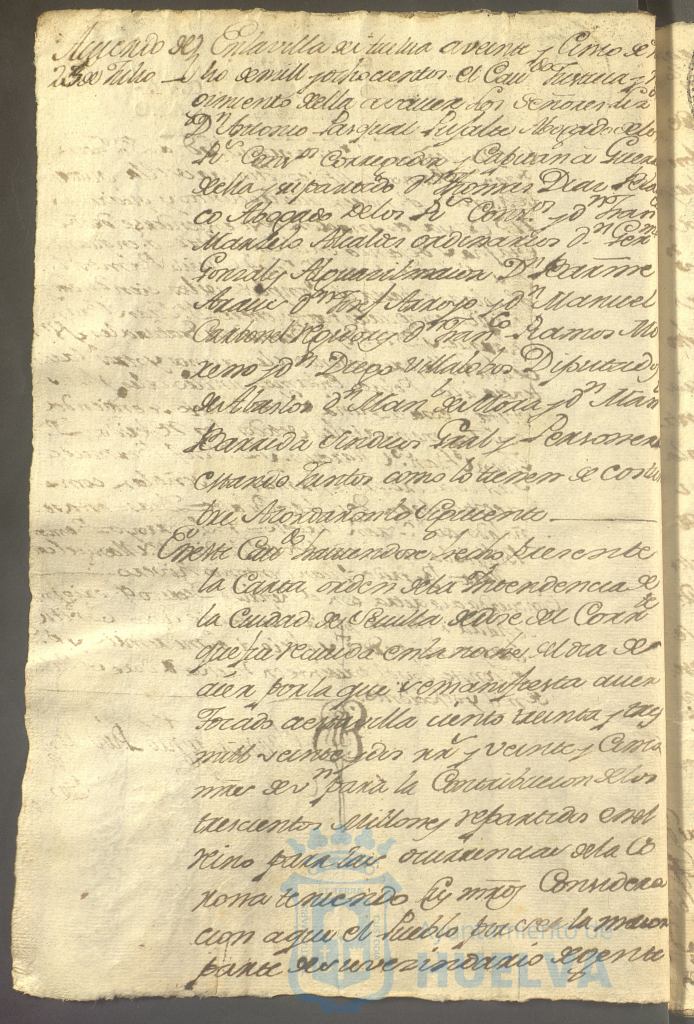 Acuerdo de
25 de Julio
En la villa de Huelva a veinte y cinco de
Julio de mill y ochocientos el Cavdo Justicia y
gimiento della a saver los Señores Lizdo
Dn Antonio Pasqual Abogado de los
Rs Consos Corregidor y Capitan a Guerra
della y su partido Dn Thomas Diaz
co Abogado de los Rs Consos y dn Fran
Alcaldes ordinarios dn
Gonzalez Alguacil maior Dn Barme
dn Josef Arroyo y dn Manuel
Carbonel Rexidores dn Franco Ramos Mo
reno y dn Diego Villalobos Diputados
de Abastos dn Manl de Mora y dn Man
Barreda Sindicos Gral y Personero
estando Juntos como lo tienen de costum
bre Acordaron lo siguiente
En este Cavdo haviendose hecho presente
la Carta orden de la Intendencia de
la Ciudad de Sevilla del Corrte
que fue recivida en la noche del dia de
aier por la que se manifiesta aver
tocado a esta villa ciento treinta y tres
mill veinte y dos rrs y veinte y cinco
mrs de vn para la Contribucion de los
trescientos Millones repartidos en el
reino para las ocurrencias de la Co
rona teniendo sus mrds Considera
cion a que el Pueblo por ser la maior
parte de su vezindario de gente
Ayuntamiento de
HUELVA